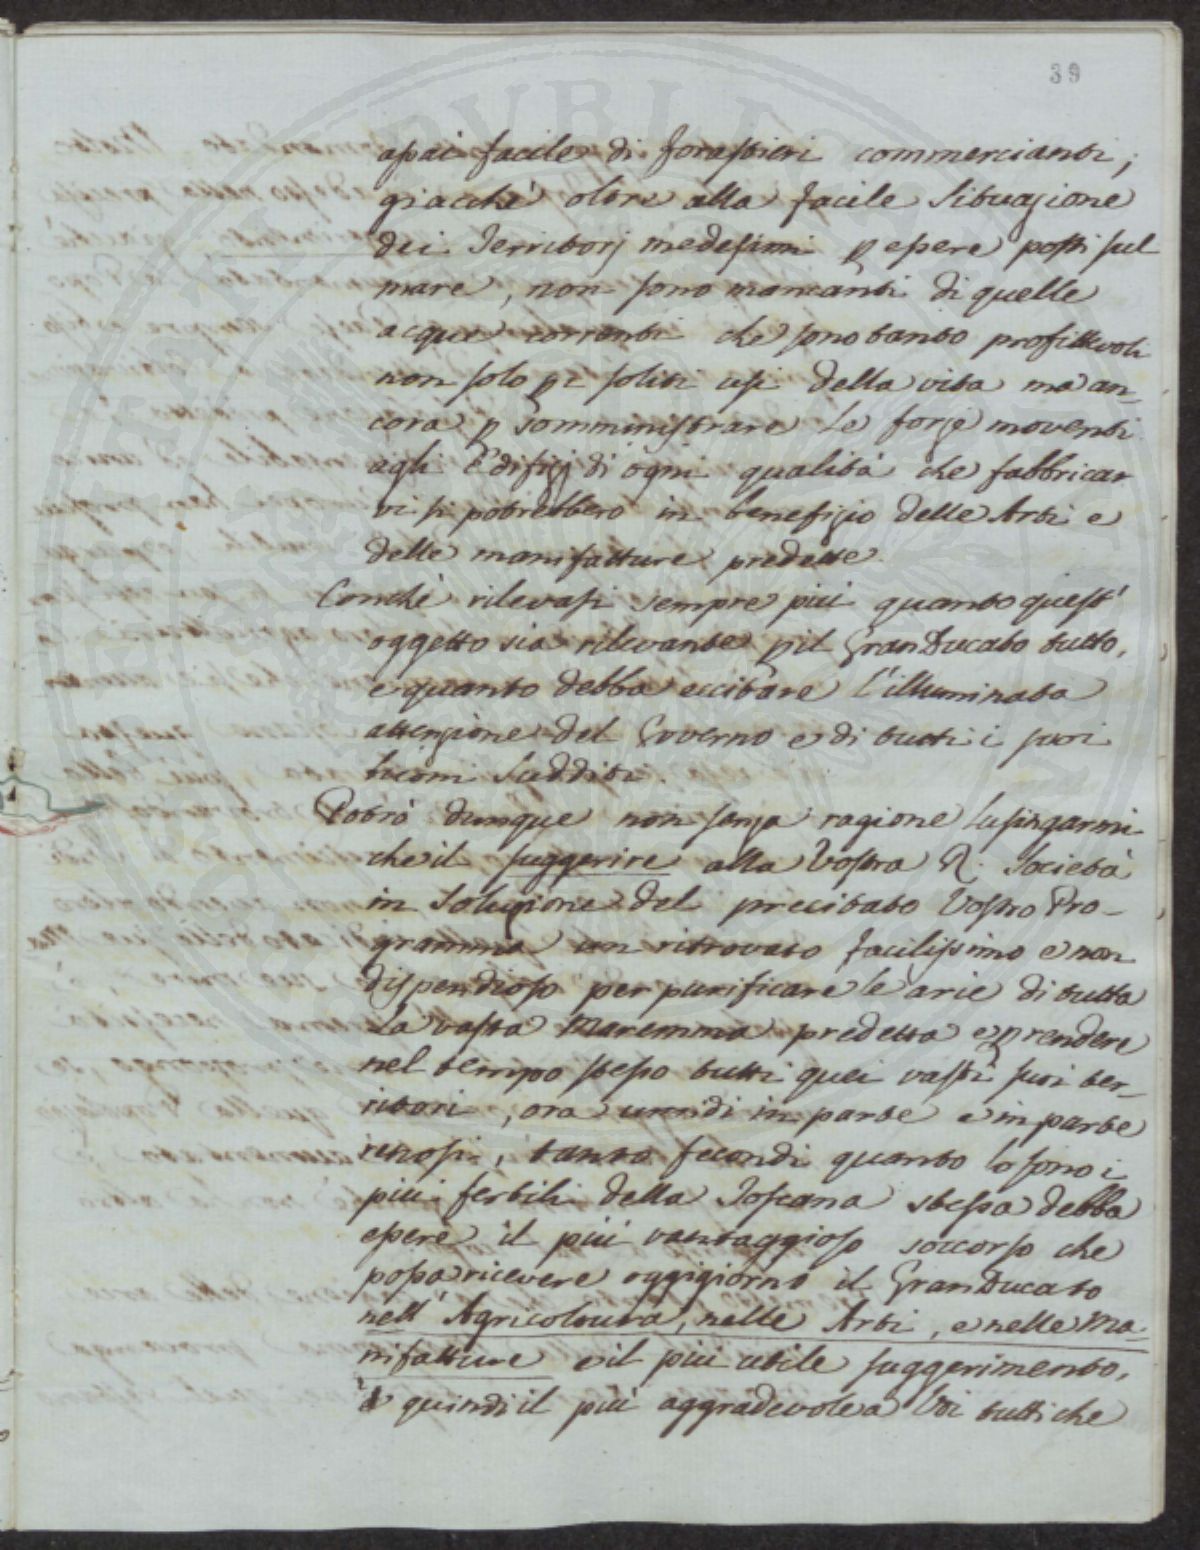 39
assai facile di forastieri commercianti;
giacchè oltre alla facile situazione
dei Territorj medesimi p essere posti sul
mare, non sono mancanti di quelle
acque correnti che sono tanto profittevoli
non solo pr soliti usi della vita ma an-
cora p somministrare le forze moventi
agli Edifizj di ogni qualità che fabbricar
vi si potrebbero in benefizio delle Arti e
delle manifatture predette.
Conchè rilevasi sempre più quanto quest'
oggetto sia rilevante p il GranDucato tutto,
e quanto debba eccitare l'illuminata
attenzione del Governo e di tutti i suoi
buoni Sudditi.
Potrò dunque non senza ragione lusingarmi
che il suggerire alla Vostra R. Società
in soluzione del precitato Vostro Pro-
gramma un ritrovato facilissimo e non
dispendioso per purificare le arie di tutta
la vasta Maremma predetta e p rendere
nel tempo stesso tutti quei vasti suoi ter-
ritori, ora umidi in parte e in parte
ritrosi, tanto fecondi quanto lo sono i
più fertili della Toscana stessa debba
essere il più vantaggioso soccorso che
possa ricevere oggigiorno il GranDucato
nell'Agricoltura, nelle Arti, e nelle Ma-
nifatture e il più utile suggerimento,
e quindi il più aggradevole a Voi tutti che